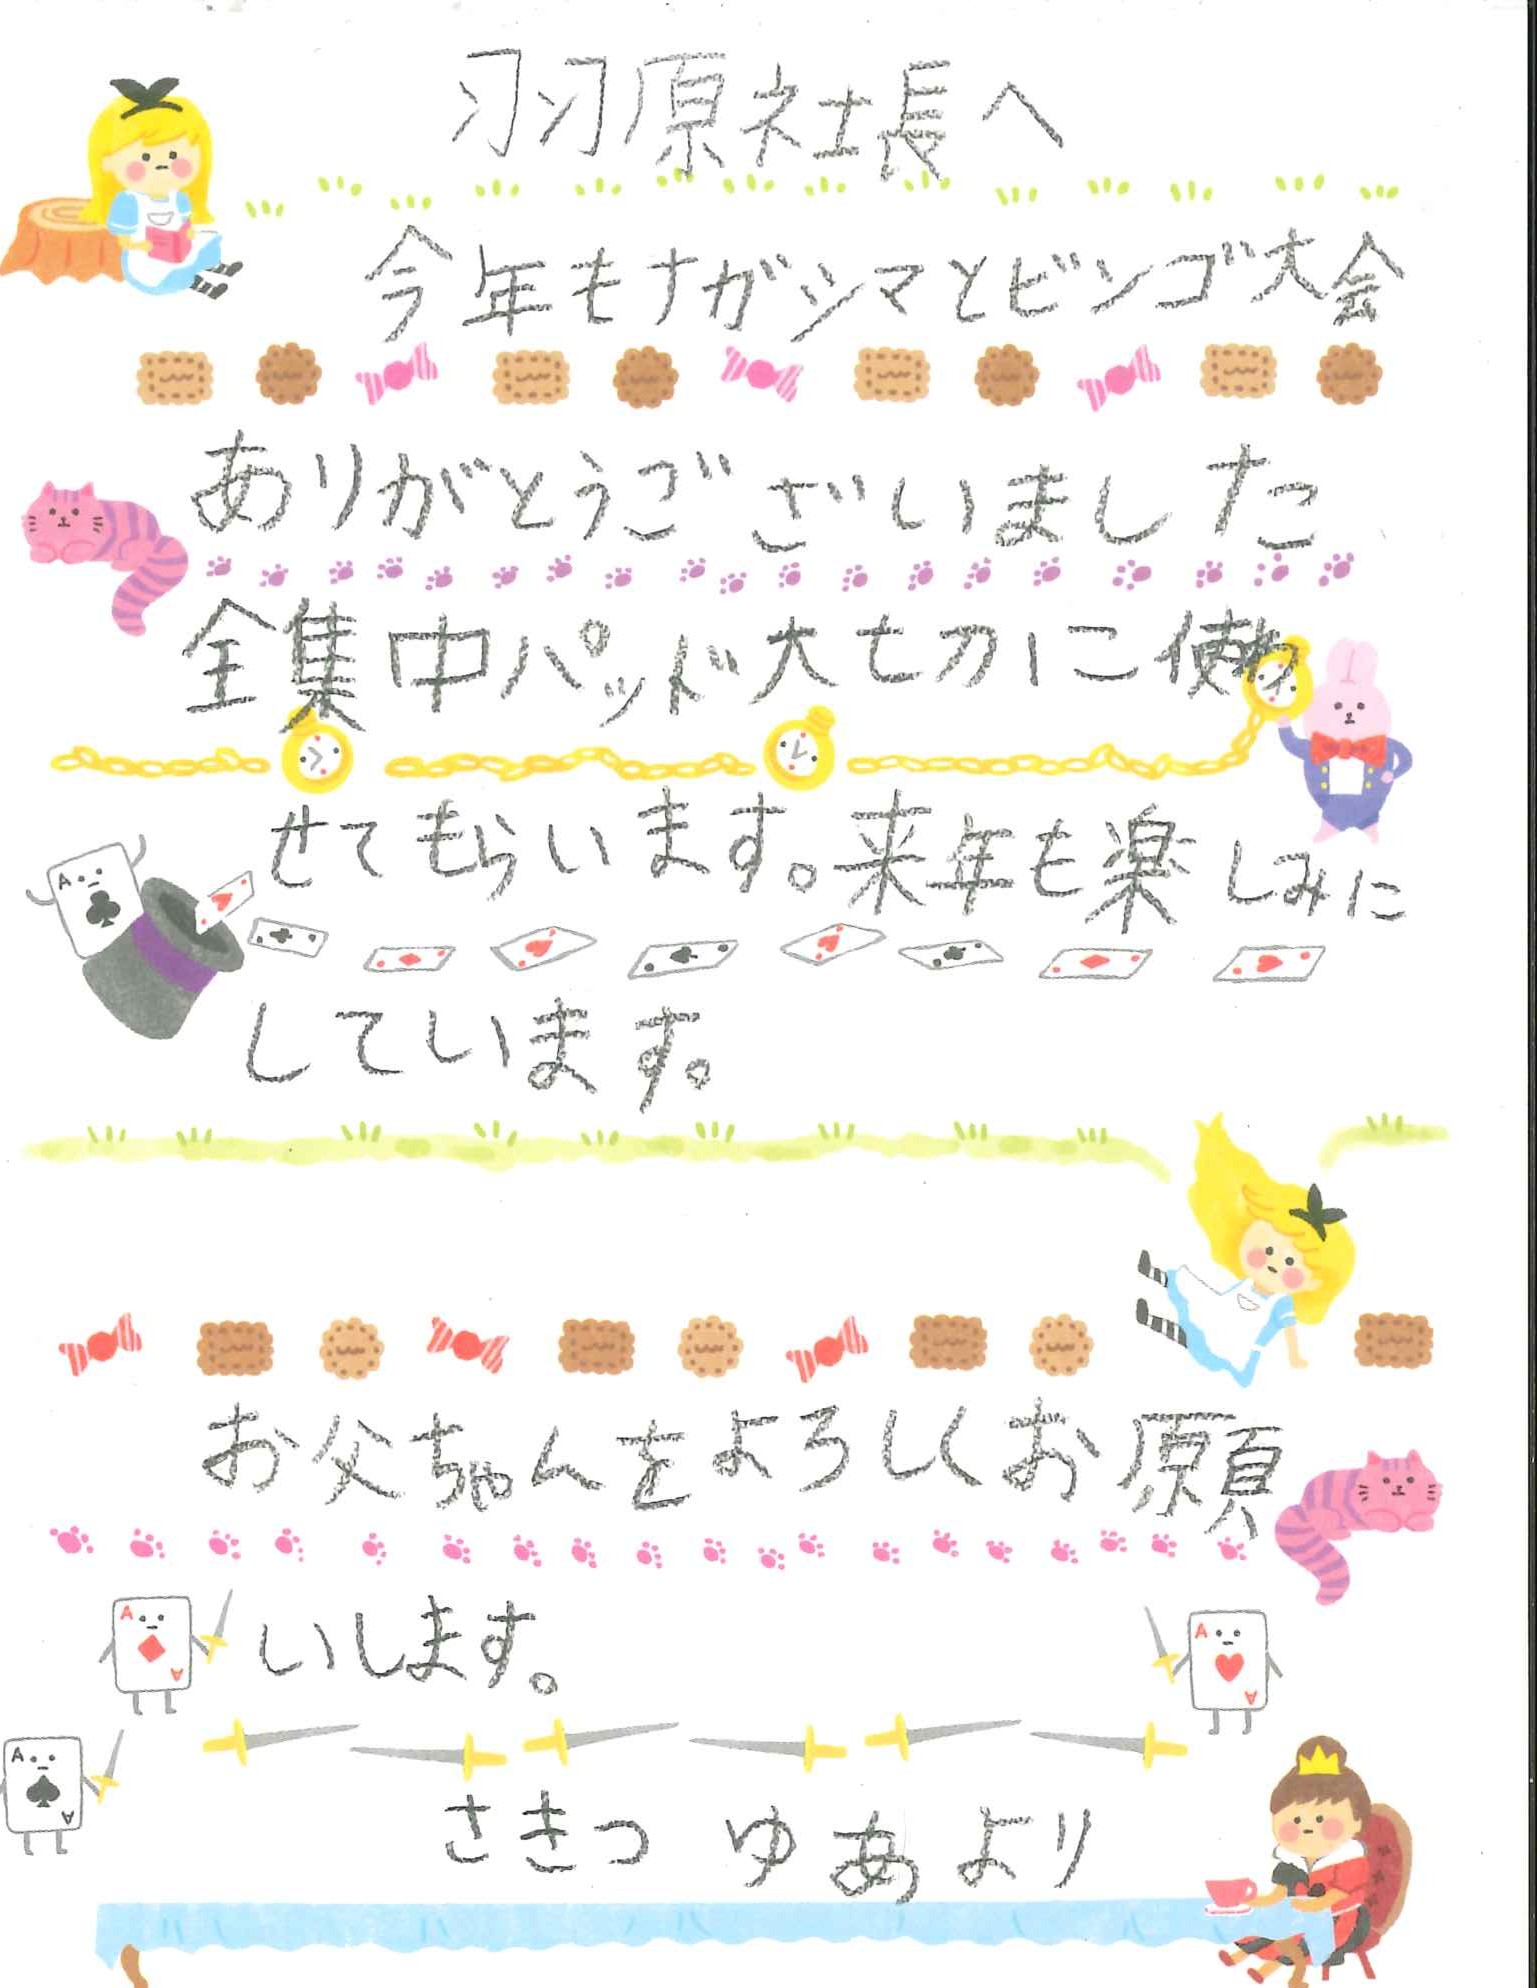 羽原社長へ
今年もナガシマとビンゴ大会
ありがとうございました
全集中パッド大切に使わ
せてもらいます。来年も楽しみに
しています。
お父ちゃんをよろしくお願
いします。
さきつ ゆあより